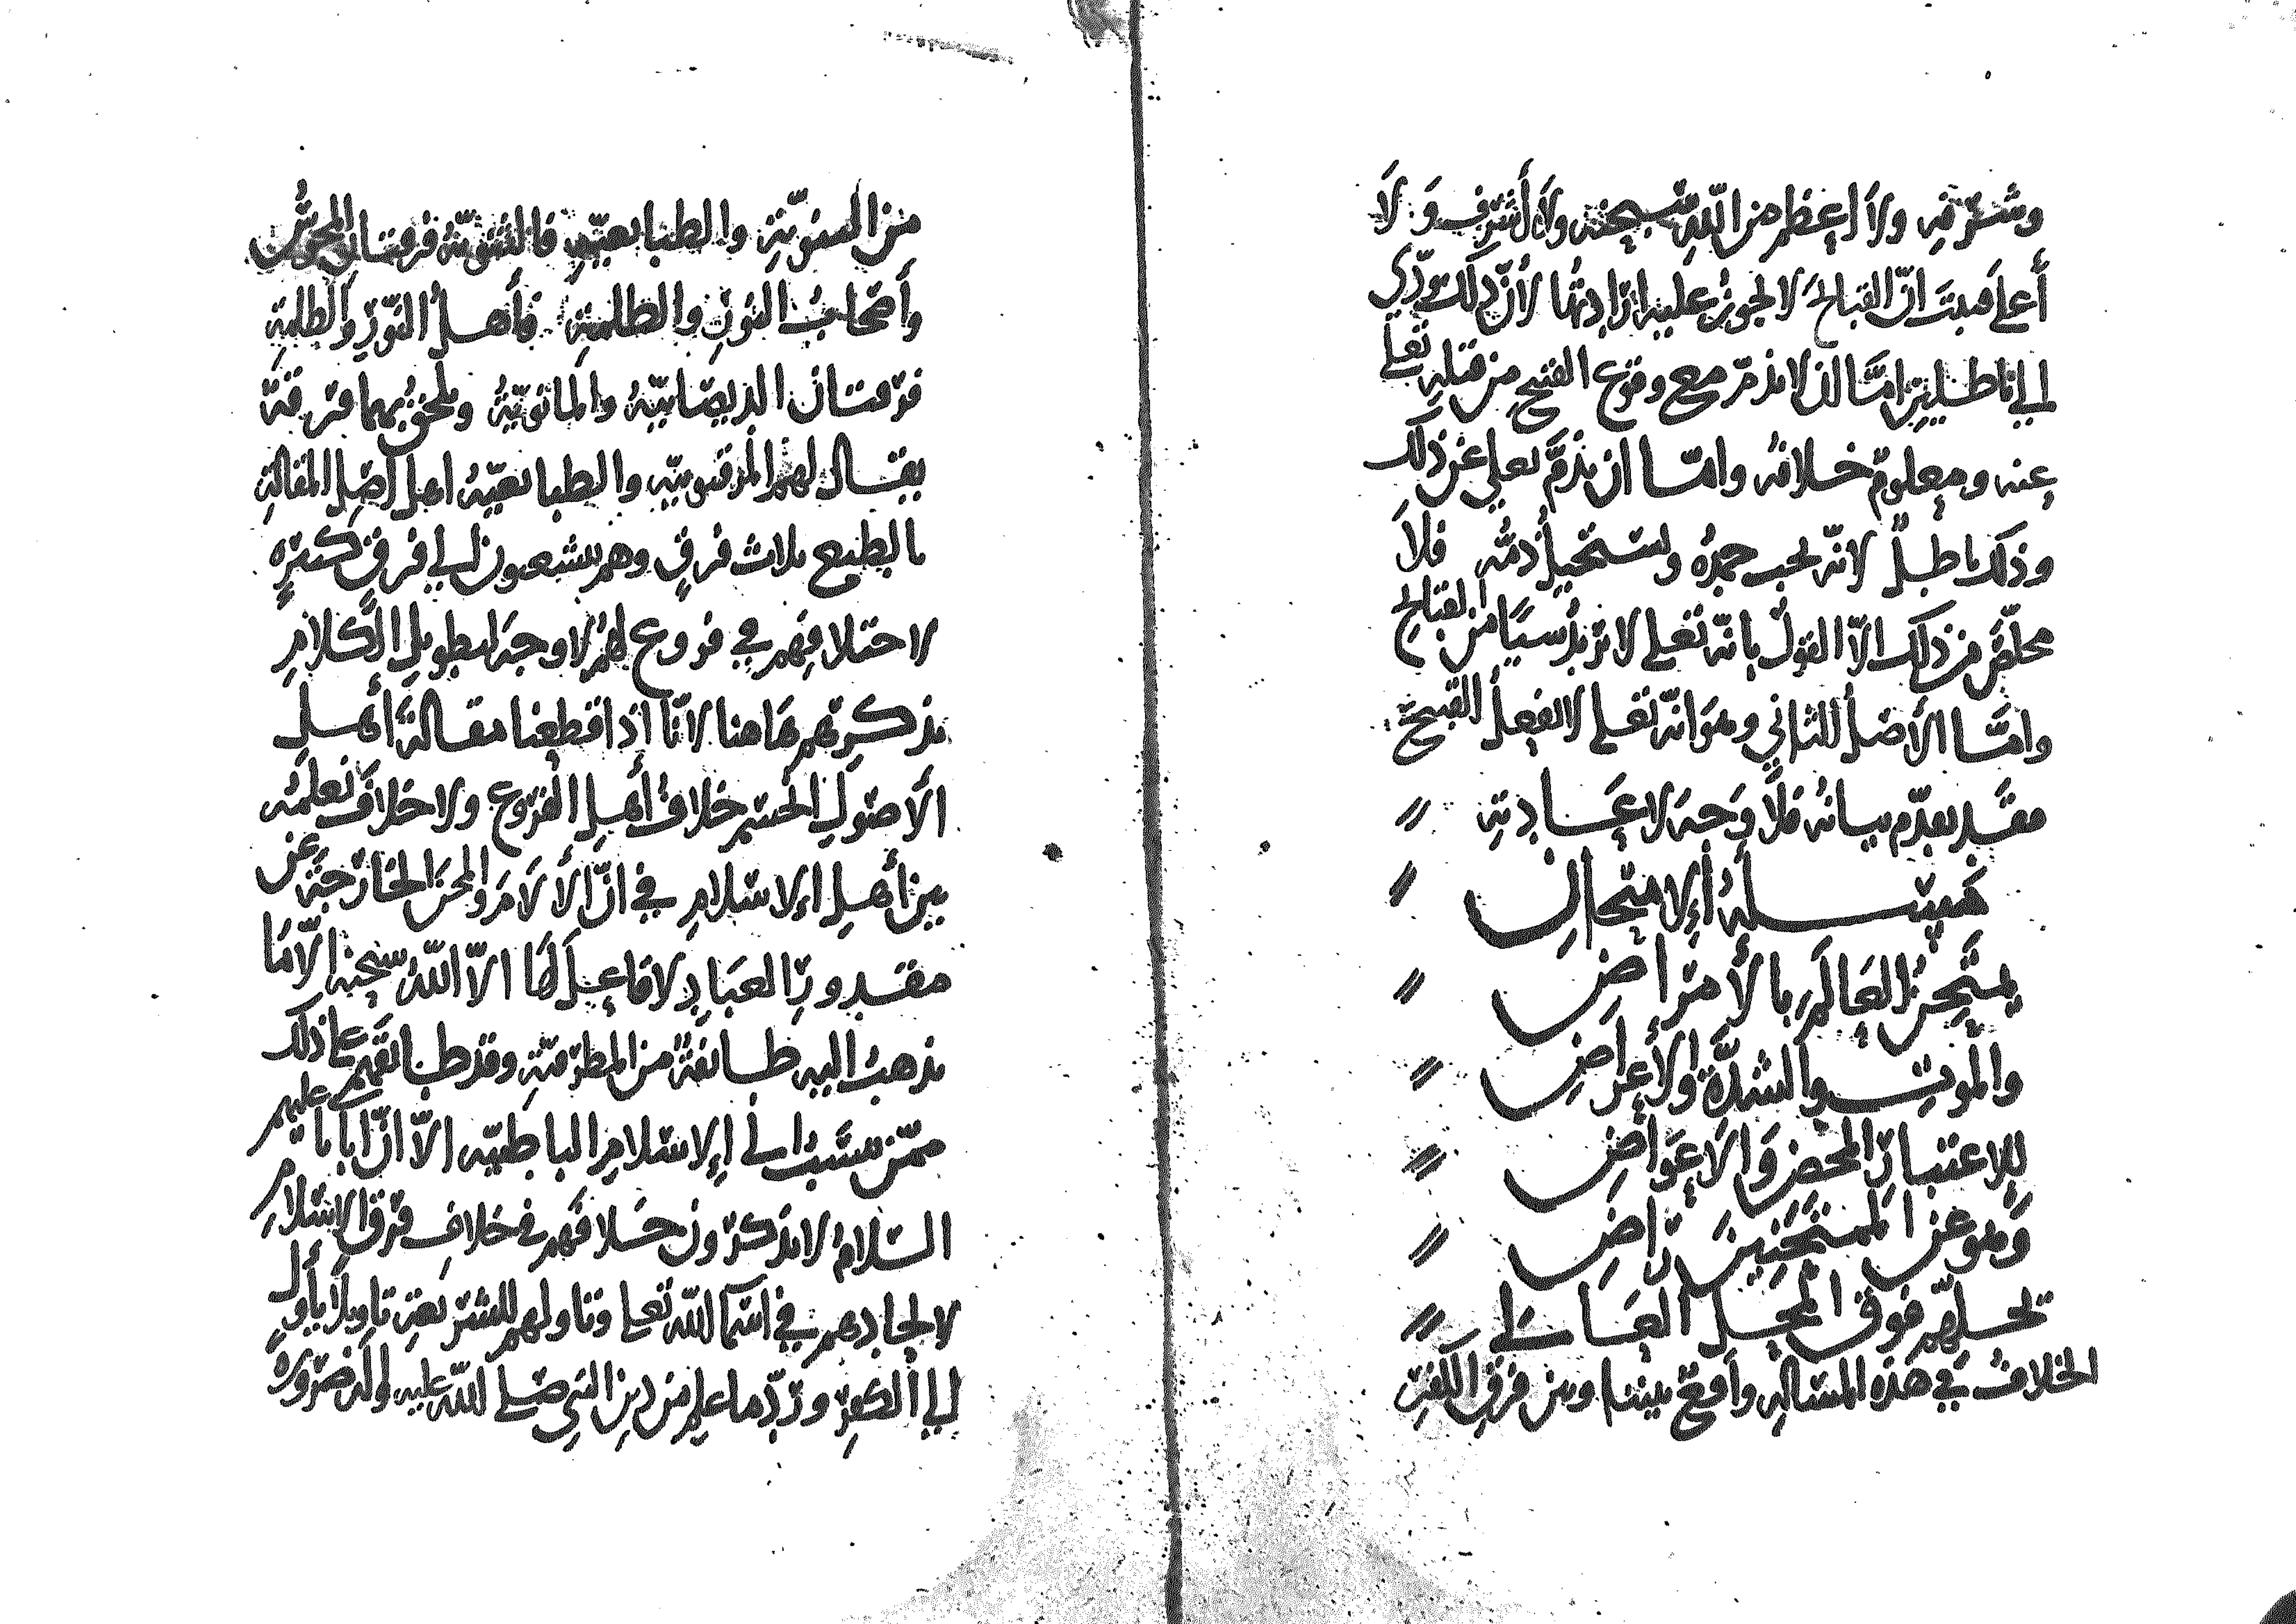 وشرفه ولا أعظم من الله سبحنه ولا أشرف ولا
أعلا فثبت انّ القبائح لا تجوز عليه ارادتها لأن ذلك يودّي
إلى باطلين امّا ان لا يذمّ مع وقوع القبيح من قبله تعلى
عنه ومعلوم خلافه وامّا ان يذمّ تعلى عن ذلك
وذلك باطل لانّه يجب حمده ويستحيل ذمّه فلا
مخلص من ذلك الاّ القول بانّه تعلى لا يريد شيئا من القبائح
وامّا الأصل الثاني وهو انّه تعلى لا يفعل القبيح
فقد تقدّم بيانه فلا وجه لاعادته
مسئلة الإمتحان
يمتحن العالم بالأمراض
والموت والشدّة والأعراض
للاعتبار المحض والاعواض
وهو عن الممتحنين راض
تحلهم فوق المحل العالي
الخلاف في هذه المسئلة واقع بيننا وبين فرق الكفر
من الثنويّة والطبايعيّة فالثنويّة فرقتان المجوس
وأصحاب النور والظلمة فأهل النور والظلمة
فرقتان الديصانيّة والمانويّة ويلحق بهما فرقة
يقال لهم المرقونيّة والطبايعيّة اهل اصل المقالة
بالطبع ثلاث فرق وهم يتشعبون إلى فرق كثيرة
لاختلافهم في فروع لهم لا وجه لتطويل الكلام
بذكرهم هاهنا لانّا اذا قطعنا مقالة أهل
الأصول انحسم خلاف أهل الفروع ولا خلاف نعلمه
بين أهل الإسلام في انّ الألام والمحن الخارجة عن
مقدور العباد لا فاعل لها الاّ الله سبحنه الاّ ما
يذهب اليه طائفة من المطرفيّة وقد طابقهم على ذلك
ممّن ينتسب الى الإسلام الباطنيّه الاّ انّ ابانا عليهم
السلام لا يذكرون خلافهم في خلاف فرق الإسلام
لالحادهم في اسما الله تعلى وتاولهم للشريعة تاويلا يأول
إلى الكفر وردّ ما علم من دين النبي صلى الله عليه وآله ضرورة